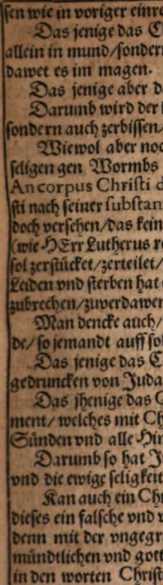 sen wie in voriger einre
Das jenige das C
allein in mund/sondern
dawet es im magen.
Das jenige aber d
Darumb wird der
sondern auch zerbissen
Wiewol aber noc
seligen gen Wormbs
An corpus Christi
sti nach seiner substan
doch versehen/das kein
(wie HErr Lutherus r
sol zerstücket/zerteilet/
Leiden vnd sterben hat
zubrechen/zuverdawe
Man dencke auch/
de/so jemandt auff sol
Das jenige das C
gedruncken von Juda
Das jhenige das C
ment/welches mit Ch
Sünden vnd alle
Darumb so hat J
vnd die ewige seligkeit
Kan auch ein Ch
dieses ein falsche vnd v
denn mit der vngegr
mündtlichen vnd gott
in den worten Christ